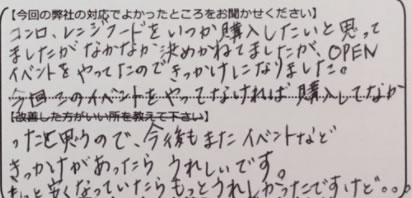 【今回の弊社の対応でよかったところをお聞かせください】
コンロ、レンジフードをいつか購入したいと思って
ましたがなかなか決めかねてましたが、OPEN
イベントをやってたのできっかけになりました。
今回このイベントをやってなければ購入してなか
【改善した方がいい所を教えて下さい】
ったと思うので、今後もまたイベントなど
きっかけがあったらうれしいです。
もっと安くなっていたらもっとうれしかったですけど。。。